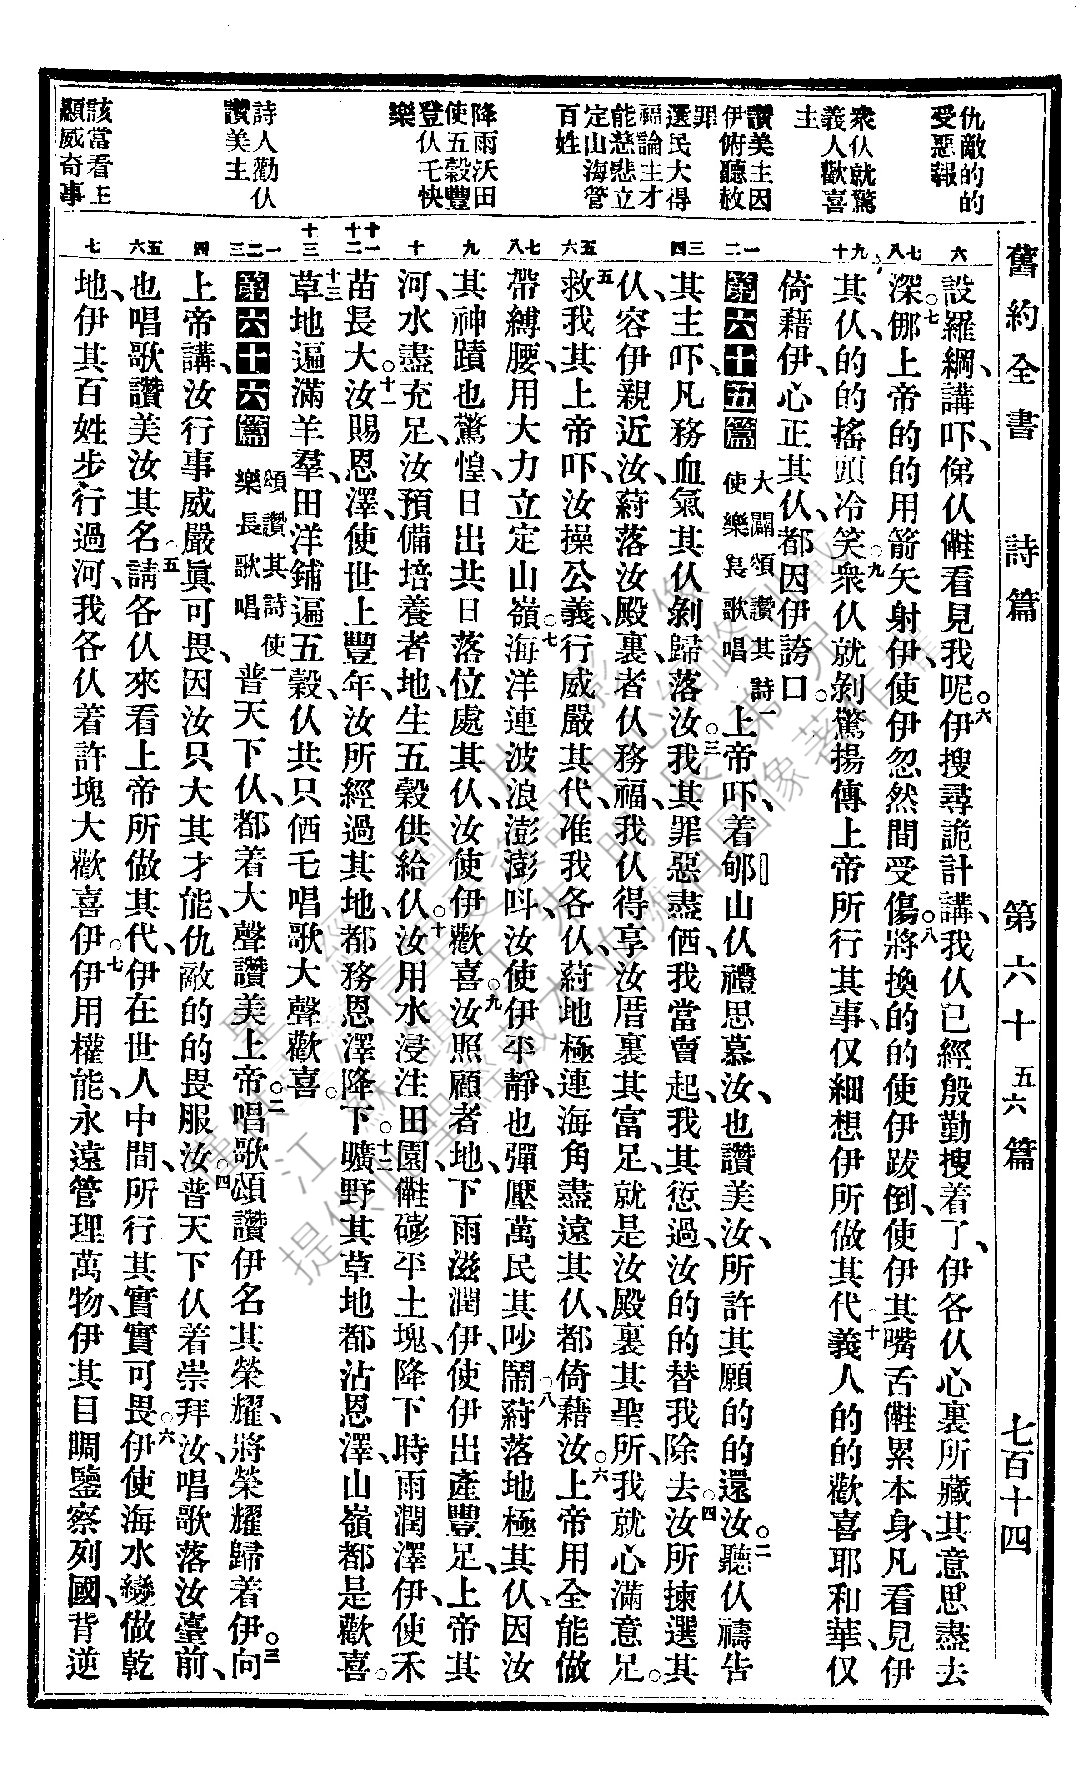 舊約全書 詩篇 第六十五六篇 七百十四
仇敵的的
受惡報
衆仸就驚
義人歡喜
主
讚美主因
伊俯聽赦
罪
選民大得
福論主才
能慈悲立
定山海管
百姓
降雨沃田
使五穀豐
登仸乇快
樂
詩人勸仸
讚美主
該當看主
顯威奇事
六
七
八
九
十
一
二
三
四
五
六
七
八
九
十
十一
十二
十三
一
二
三
四
五
六
七
設羅網講吓、俤仸㒰看見我呢。六伊搜尋詭計講、我仸已經殷勤搜着了、伊各仸心裏所藏其意思盡去
深。七㑚上帝的的用箭矢射伊、使伊忽然間受傷。八將換的的使伊跋倒、使伊其嘴舌㒰累本身、凡看見伊
其仸的的搖頭冷笑。九衆仸就剝驚、揚傳上帝所行其事、仅細想伊所做其代。十義人的的歡喜耶和華、仅
倚藉伊、心正其仸、都因伊誇口。
第六十五篇 大闢頌讚其詩使樂長歌唱 一上帝吓、着郇山仸禮思慕汝、也讚美汝、所許其願的的還汝。二聽仸禱告
其主吓、凡務血氣其仸剝歸落汝。三我其罪惡盡価我當𧶠起、我其愆過、汝的的替我除去。四汝所揀選其
仸、容伊親近汝、㽵落汝殿裏者仸務福、我仸得享汝厝裏其富足、就是汝殿裏其聖所、我就心滿意足。
五救我其上帝吓、汝操公義、行威嚴其代、准我各仸、㽵地極連海角盡遠其仸、都倚藉汝。六上帝用全能做
帶縛腰、用大力立定山嶺。七海洋連波浪澎澎吽、汝使伊平靜、也彈壓萬民其吵鬧。八㽵落地極其仸、因汝
其神蹟也驚惶、日出共日落位處其仸、汝使伊歡喜。九汝照顧者地、下雨滋潤伊、使伊出產豐足、上帝其
河水盡充足、汝預備培養者地、生五穀供給仸。十汝用水浸注田園、㒰磟平土塊、降下時雨潤澤伊、使禾
苗長大。十一汝賜恩澤、使世上豐年、汝所經過其地、都務恩澤降下。十二曠野其草地都沾恩澤、山嶺都是歡喜。
十三草地遍滿羊羣、田洋鋪遍五穀、仸共只価乇唱歌大聲歡喜。
第六十六篇 頌讚其詩使樂長歌唱 一普天下仸、都着大聲讚美上帝。二唱歌頌讚伊名其榮耀、將榮耀歸着伊。三向
上帝講、汝行事威嚴眞可畏、因汝只大其才能、仇敵的的畏服汝。四普天下仸着崇拜汝、唱歌落汝臺前、
也唱歌讚美汝其名。五請各仸來看上帝所做其代、伊在世人中間、所行其實實可畏。六伊使海水變做乾
地、伊其百姓步行過河、我各仸着許塊大歡喜伊。七伊用權能、永遠管理萬物、伊其目睭鑒察列國、背逆